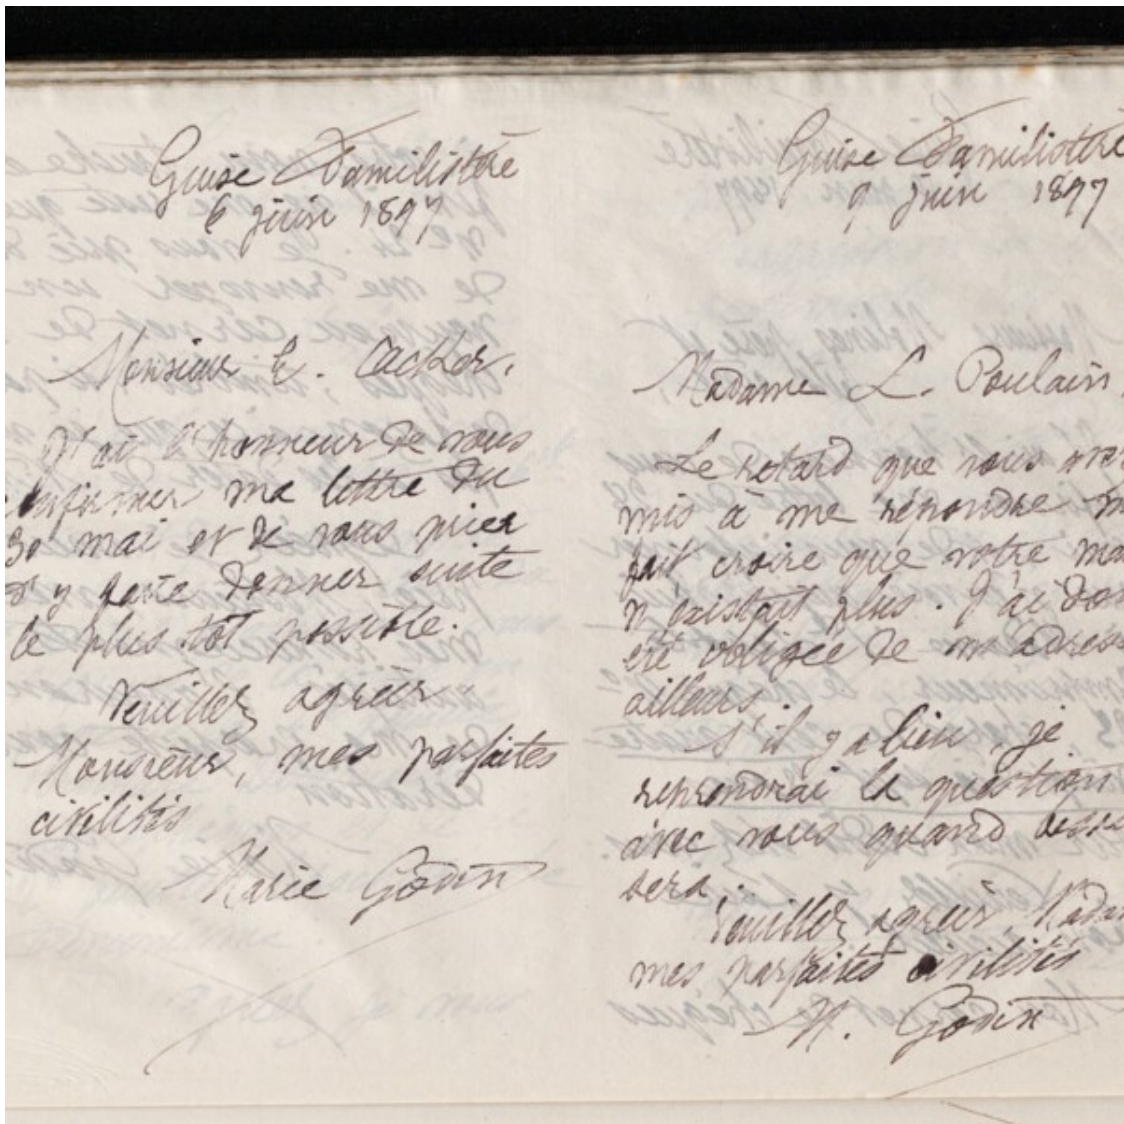 Guise Familistère
6 juin 1897
Monsieur E. Cacker.
J'ai l'honneur de vous
confirmer ma lettre du
30 mai et de vous prier
d'y faire donner suite
le plus tôt possible.
Veuillez agréer
Monsieur, mes parfaites
civilités
Marie Godin
Guise Familistère
9 juin 1897
Madame L. Poulain,
Le retard que vous
mis à me répondre
fait croire que votre
n'existait plus. J'ai
été obligée de
ailleurs.
S'il y a lieu, je
reprendrai la question
avec vous quand
sera.
Veuillez agréer,
mes parfaites civilités
M. Godin